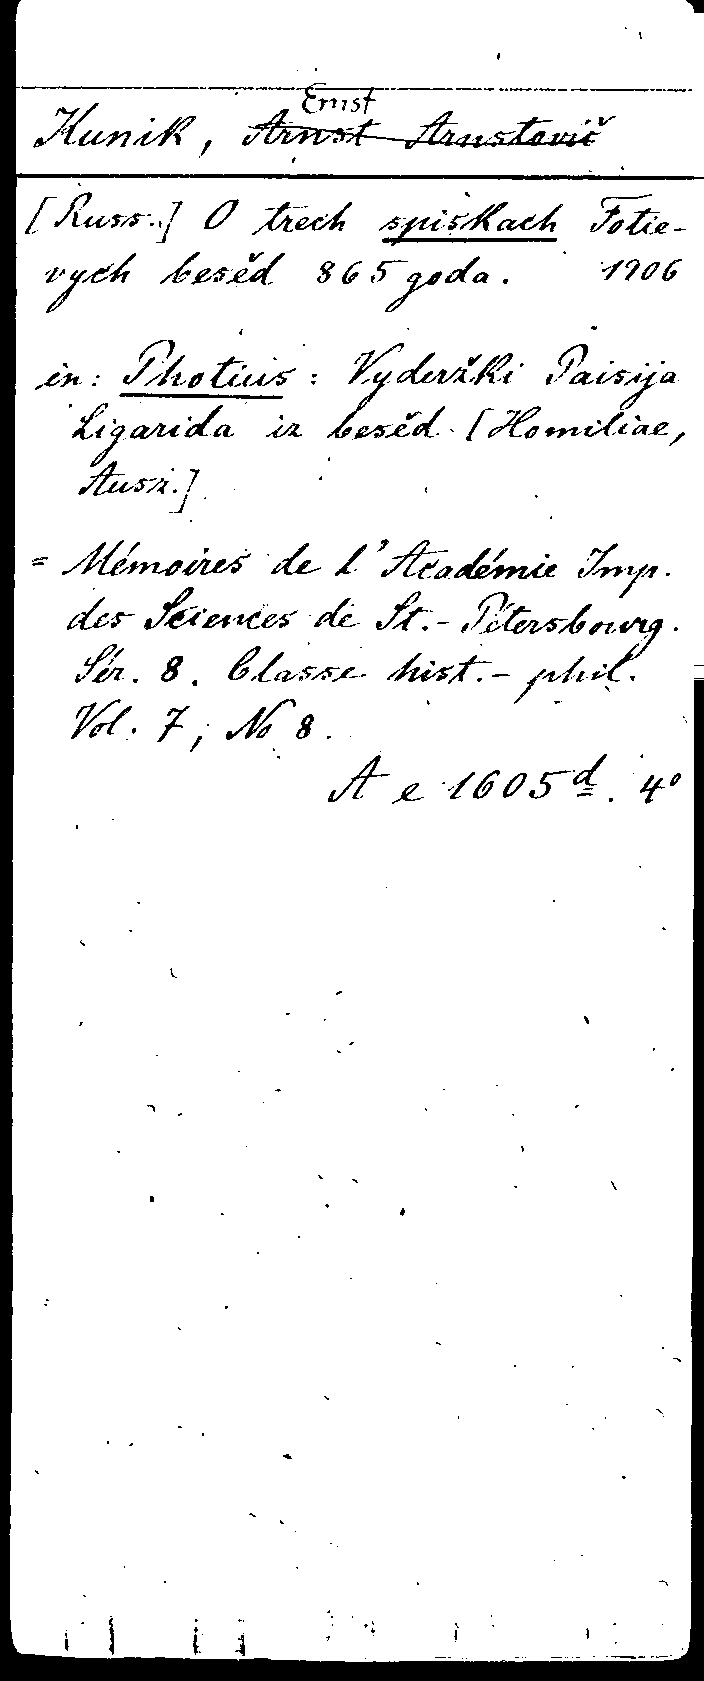 Kunik, Ernst Arnst Arnstovič
[Russ.] O trech spiskach Fotie-
vych besěd 865 goda. 1906
in: Photius: Vyderžki Paisija
Ligarida iz besěd [Homiliae,
Ausz.]
= Mémoires de l'Académie Imp.
des Sciences de St.-Pétersbourg.
Sér. 8. Classe hist.-phil.
Vol. 7, No 8.
A e 1605d. 4°